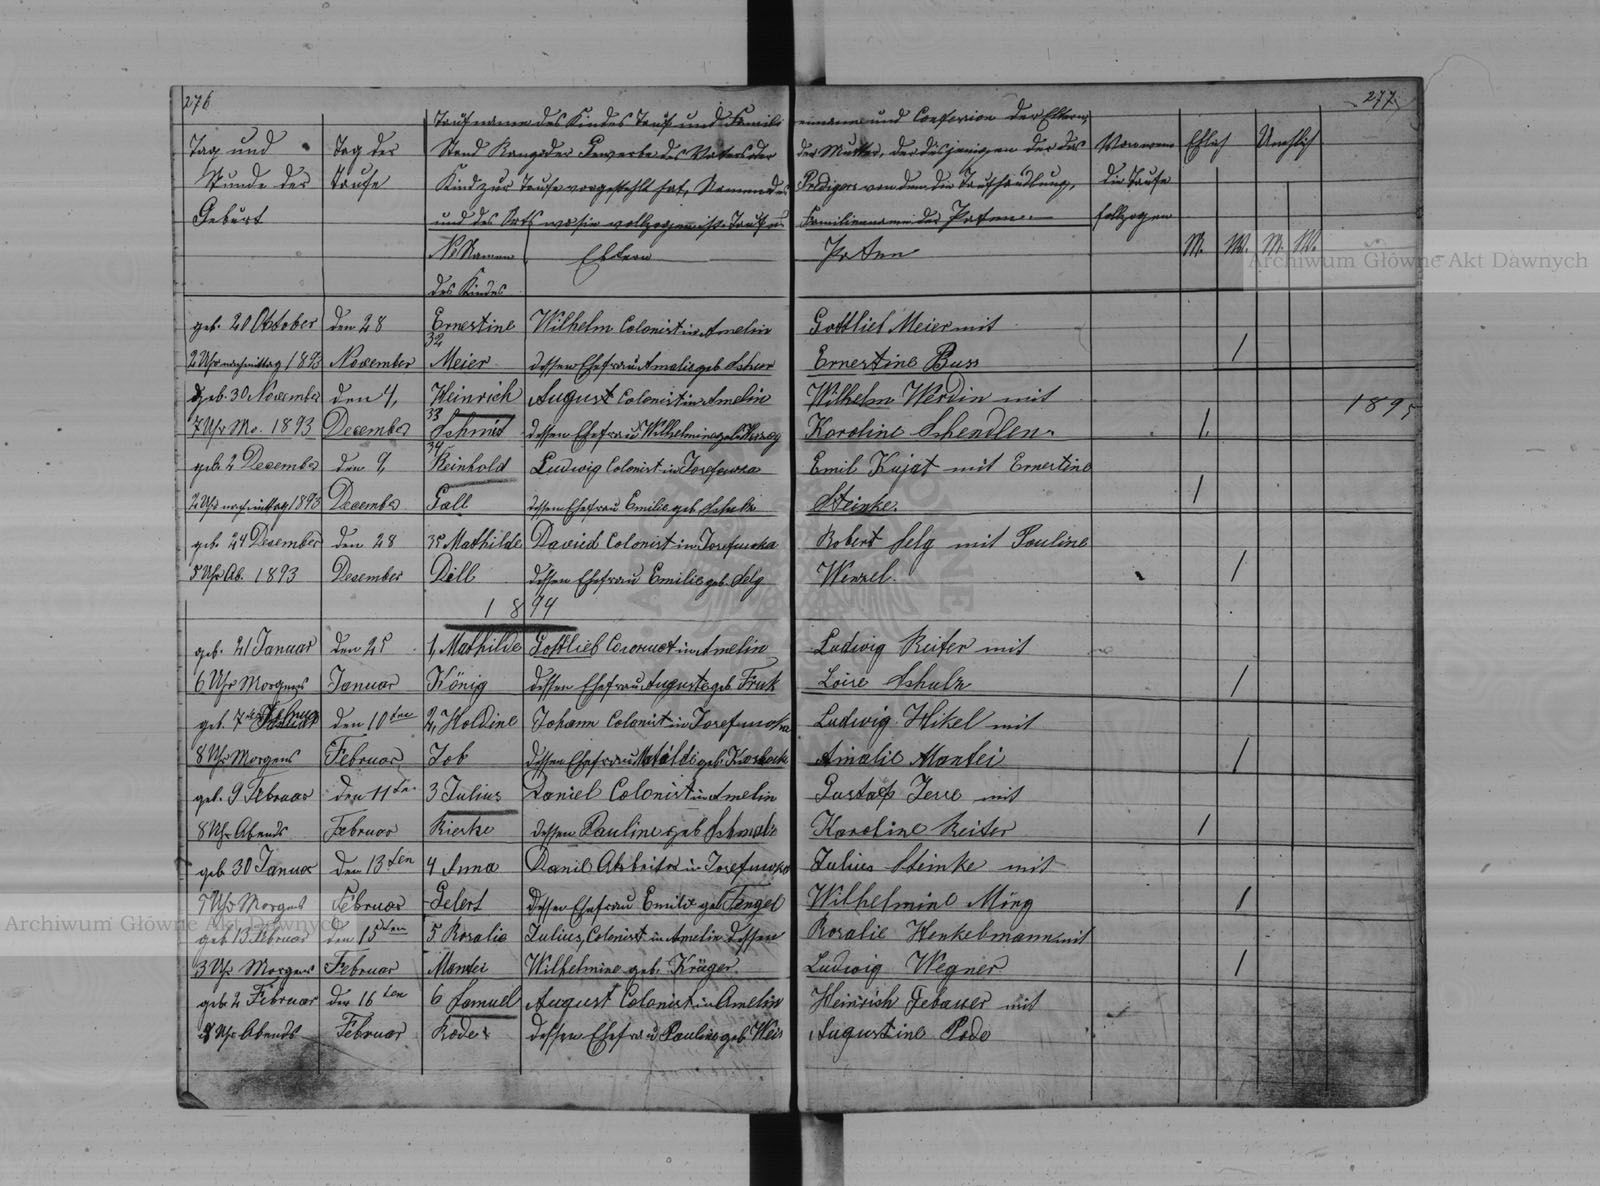 276
277
Taufname des Kindes Tauf und Familienname und Confession der Eltern,
Tag und Tag der Stand Rang oder Gewerbe des Vaters oder der Mutter, der desjenigen der das Ehlich Unehlich
Stunde der Taufe Kind zur Taufe vorgestehlt hat, Namen des Predigers von dem die Taufhandlung, die Taufe
Geburt und des Orts wo sie vollzogen ist. Tauf u Familienname der Paten. follzogen
No Namen Eltern Paten M. W. M. W.
des Kindes
geb. 20 Oktober den 28 Ernestine Wilhelm Colonist in Amelin Gottlieb Meier mit
32
2 Uhr nachmittag 1893 November Meier dessen Ehefrau Amalie geb Ernestine Buss /
geb. 30 November den 4, Heinrich August Colonist in Amelin Wilhelm Werdin mit
1895
33
7 Uhr Mo. 1893 December Schmid dessen Ehefrau Wilhelmine geb Herzog Karoline /
34
geb 2 December den 9, Reinhold Ludwig Colonist in Josefowka Emil Kujat mit Ernestine
2 Uhr nachmittag 1893 December Gall dessen Ehefrau Emilie geb Schulz Steinke. /
geb. 24 Desember den 28 35 Mathilde David Colonist in Josefowka Robert Selg mit Pauline
5 Uhr Ab. 1893 Desember Dell dessen Ehefrau Emilie geb. Selg Wenzel. /
1894
geb. 21 Januar den 25 1, Mathilde Gottlieb in Amelin Ludwig Reiter mit
6 Uhr Morgens Januar König dessen Ehefrau Auguste geb. Schulz /
geb. 7 den 10ten 2, Holdine Johann Colonist in Josefowka Ludwig Hikel mit
8 Uhr Morgens Februar Job dessen Ehefrau geb. Amalie Mantei /
geb. 9 Februar den 11te. 3 Julius Daniel Colonist in Amelin Gustaf mit
8 Uhr Abends Februar Rieske dessen Pauline geb Schmalz Karoline Reiter /
geb 30 Januar den 13ten 4 Anna Danil Arbeiter in Josefowka Julius Steinke mit
7 Uhr Morgens Februar Gelert dessen Ehefrau Emilie geb Fengel Wilhelmine Möng /
geb 13 Februar den 15ten 5. Rosalie Julius, Colonist in Amelin dessen Rosalie Henkelmann mit
3 Uhr Morgens Februar Mantei Wilhelmine geb. Krüger. Ludwig Wegner /
geb. 2 Februar den 16ten 6 Samuel August Colonist in Amelin Heinrich Gebauer mit
8 Uhr Abends Februar Rode dessen Ehefrau Pauline geb Weis Augustine Rode
Archiwum Główne Akt Dawnych
Archiwum Główne Akt Dawnych